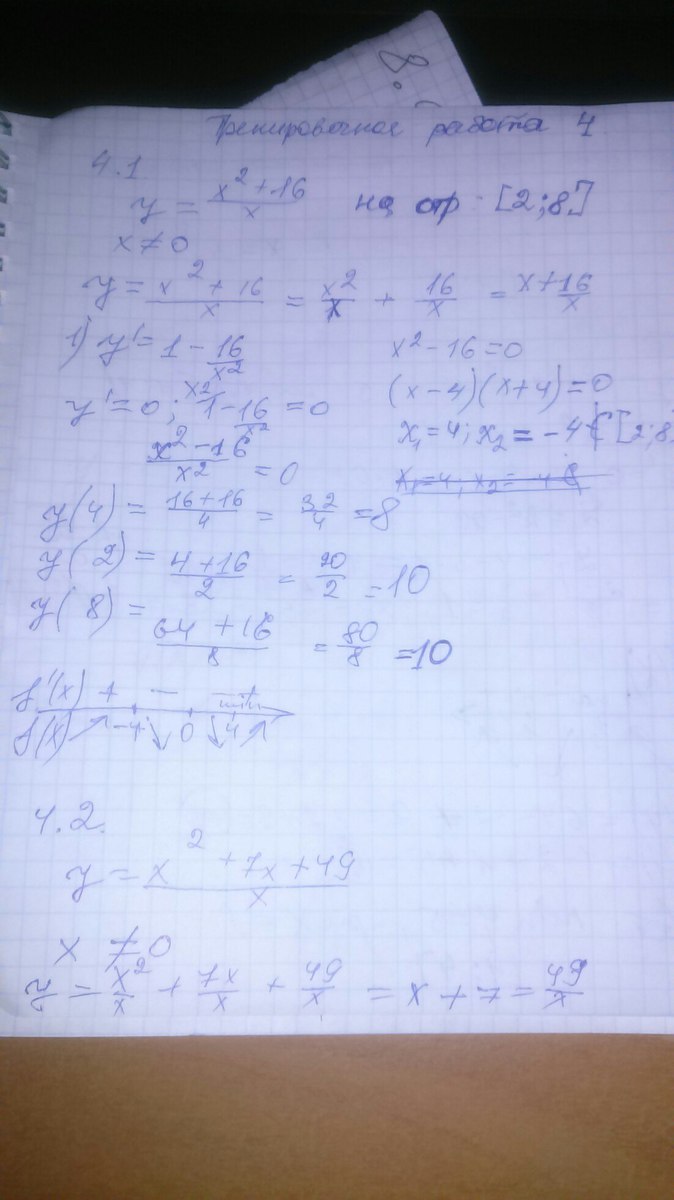 8.
Тренировочная работа 4
4.1
y = (x² + 16)/x на отр [2;8]
x ≠ 0
y = (x² + 16)/x = x²/x + 16/x = x + 16/x
1) y' = 1 - 16/x²
y' = 0; 1 - 16/x² = 0
(x² - 16)/x² = 0
x² - 16 = 0
(x - 4)(x + 4) = 0
x₁ = 4; x₂ = -4 ∉ [2;8]
y(4) = (16 + 16)/4 = 32/4 = 8
y(2) = (4 + 16)/2 = 20/2 = 10
y(8) = (64 + 16)/8 = 80/8 = 10
f'(x) + - - +
f(x) ↗ -4 ↘ 0 ↘ 4 ↗
4.2.
y = (x² + 7x + 49)/x
x ≠ 0
y = x²/x + 7x/x + 49/x = x + 7 = 49/x